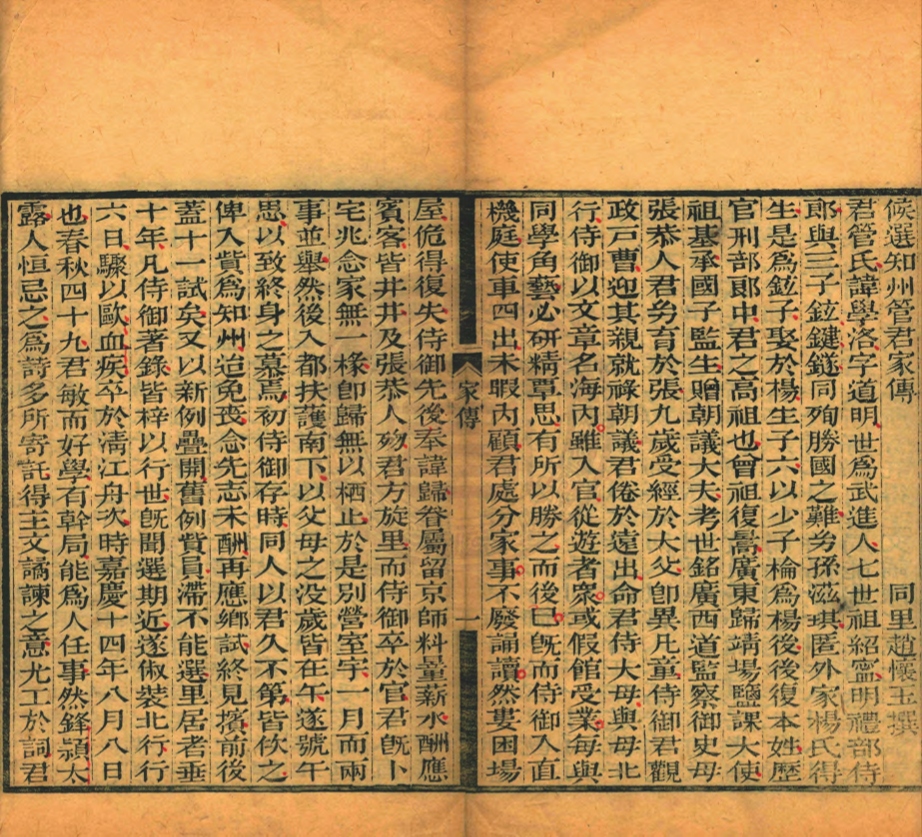 候選知州管君家傳
同里趙懷玉撰
君管氏諱學洛字道明世爲武進人七世祖紹寧明禮部侍
郎與三子鉉鍵鐩同殉勝國之難旁孫滋琪匿外家楊氏得
生是爲鉉子娶於楊生子六以少子棆爲楊後後復本姓歷
官刑部郎中君之高祖也曾祖復暠廣東歸靖場鹽課大使
祖基承國子監生贈朝議大夫考世銘廣西道監察御史母
張恭人君㓜育於張九歲受經於大父卽異凡童侍御君觀
政戸曹迎其親就祿朝議君倦於遠出命君侍大母與母北
行侍御以文章名海內雖入官從遊者衆或假館受業每與
同學角藝必硏精覃思有所以勝之而後已旣而侍御入直
機庭使車四出未暇內顧君處分家事不廢誦讀然婁困場
家傳
一
屋佹得復失侍御先後奉諱歸眷屬留京師料量薪水酬應
賓客皆井井及張恭人歿君方旋里而侍御卒於官君旣卜
宅兆念家無一椽卽歸無以栖止於是別營室宇一月而兩
事並舉然後入都扶護南下以父母之沒歲皆在午遂號午
思以致終身之慕焉初侍御存時同人以君久不第皆佽之
俾入貲爲知州迨免喪念先志未酬再應鄉試終見擯前後
蓋十一試矣又以新例疊開舊例貲員滯不能選里居者垂
十年凡侍御著錄皆梓以行世旣聞選期近遂俶裝北行行
六日驟以歐血疾卒於淸江舟次時嘉慶十四年八月八日
也春秋四十九君敏而好學有幹局能爲人任事然鋒潁太
露人恒忌之爲詩多所寄託得主文譎諫之意尤工於詞君